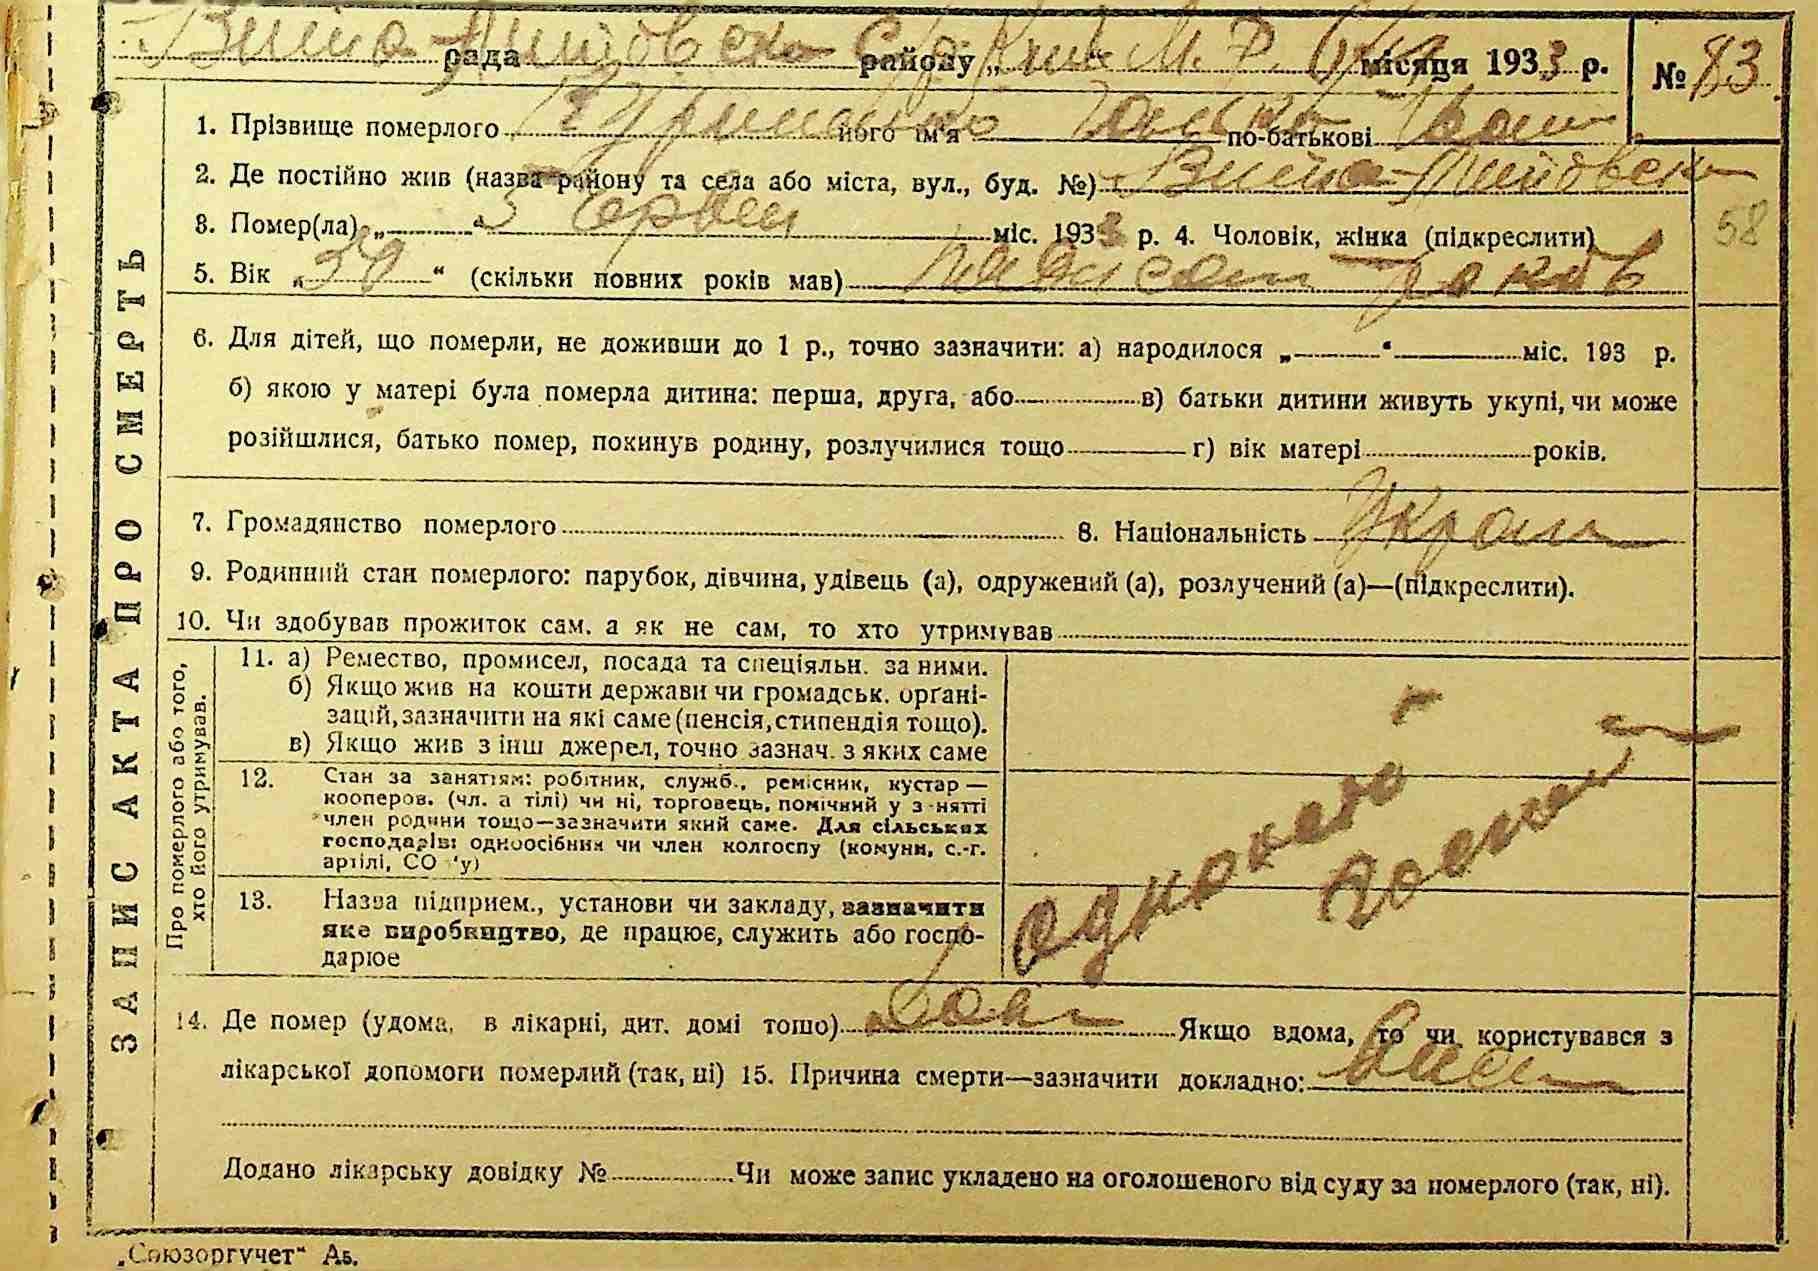 Вита-Литовска рада району „ Київ М. Р. місяця 1933 р. № 83
1. Прізвище померлого його ім'я по-батькові Іван
2. Де постійно жив (назва району та села або міста, вул., буд. №) Вита-Литовска
3. Помер(ла) „ “ 3 червня міс. 1933 р. 4. Чоловік, жінка (підкреслити)
58
5. Вік „50“ (скільки повних років мав) років
6. Для дітей, що померли, не доживши до 1 р., точно зазначити: а) народилося „ “ міс. 193 р.
б) якою у матері була померла дитина: перша, друга, або в) батьки дитини живуть укупі, чи може
розійшлися, батько помер, покинув родину, розлучилися тощо г) вік матері років.
7. Громадянство померлого 8. Національність Україн
9. Родинний стан померлого: парубок, дівчина, удівець (а), одружений (а), розлучений (а)—(підкреслити).
10. Чи здобував прожиток сам, а як не сам, то хто утримував
Про померлого або того,
хто його утримував.
11. а) Ремество, промисел, посада та спеціяльн. за ними.
б) Якщо жив на кошти держави чи громадськ. орґані-
зацій, зазначити на які саме (пенсія, стипендія тощо).
в) Якщо жив з інш джерел, точно зазнач. з яких саме
12. Стан за заняттям: робітник, служб., ремісник, кустар —
кооперов. (чл. а тілі) чи ні, торговець, помічний у з нятті
член родини тощо—зазначити який саме. Для сільських
господарів: одноосібник чи член колгоспу (комуни, с.-г.
артілі, СО 'у)
13. Назва підприєм., установи чи закладу, зазначити
яке виробництво, де працює, служить або госпо-
дарює
14. Де помер (удома, в лікарні, дит. домі тощо) Дома Якщо вдома, то чи користувався з
лікарської допомоги померлий (так, ні) 15. Причина смерти—зазначити докладно:
Додано лікарську довідку № Чи може запис укладено на оголошеного від суду за померлого (так, ні).
ЗАПИС АКТА ПРО СМЕРТЬ
„Союзоргучет“ А5.